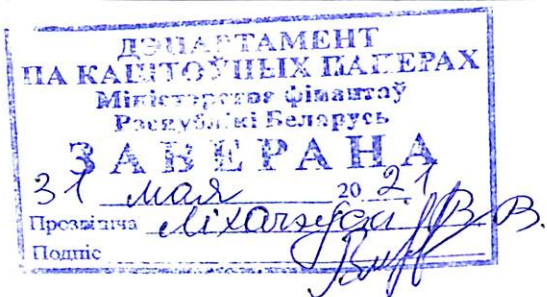 ДЭПАРТАМЕНТ
ПА КАШТОЎНЫХ ПАПЕРАХ
Міністэрства фінансаў
Рэспублікі Беларусь
ЗАВЕРАНА
31 мая 2021
Прозвішча В. В.
Подпіс